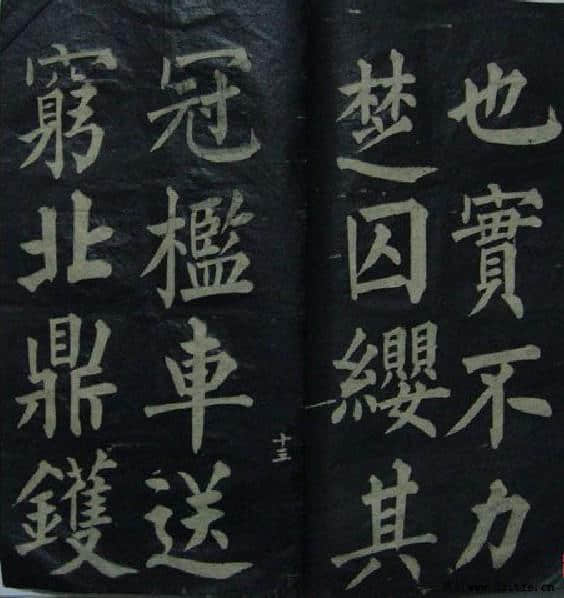 也實不力
楚囚纓其
冠檻車送
窮北鼎鑊
十三